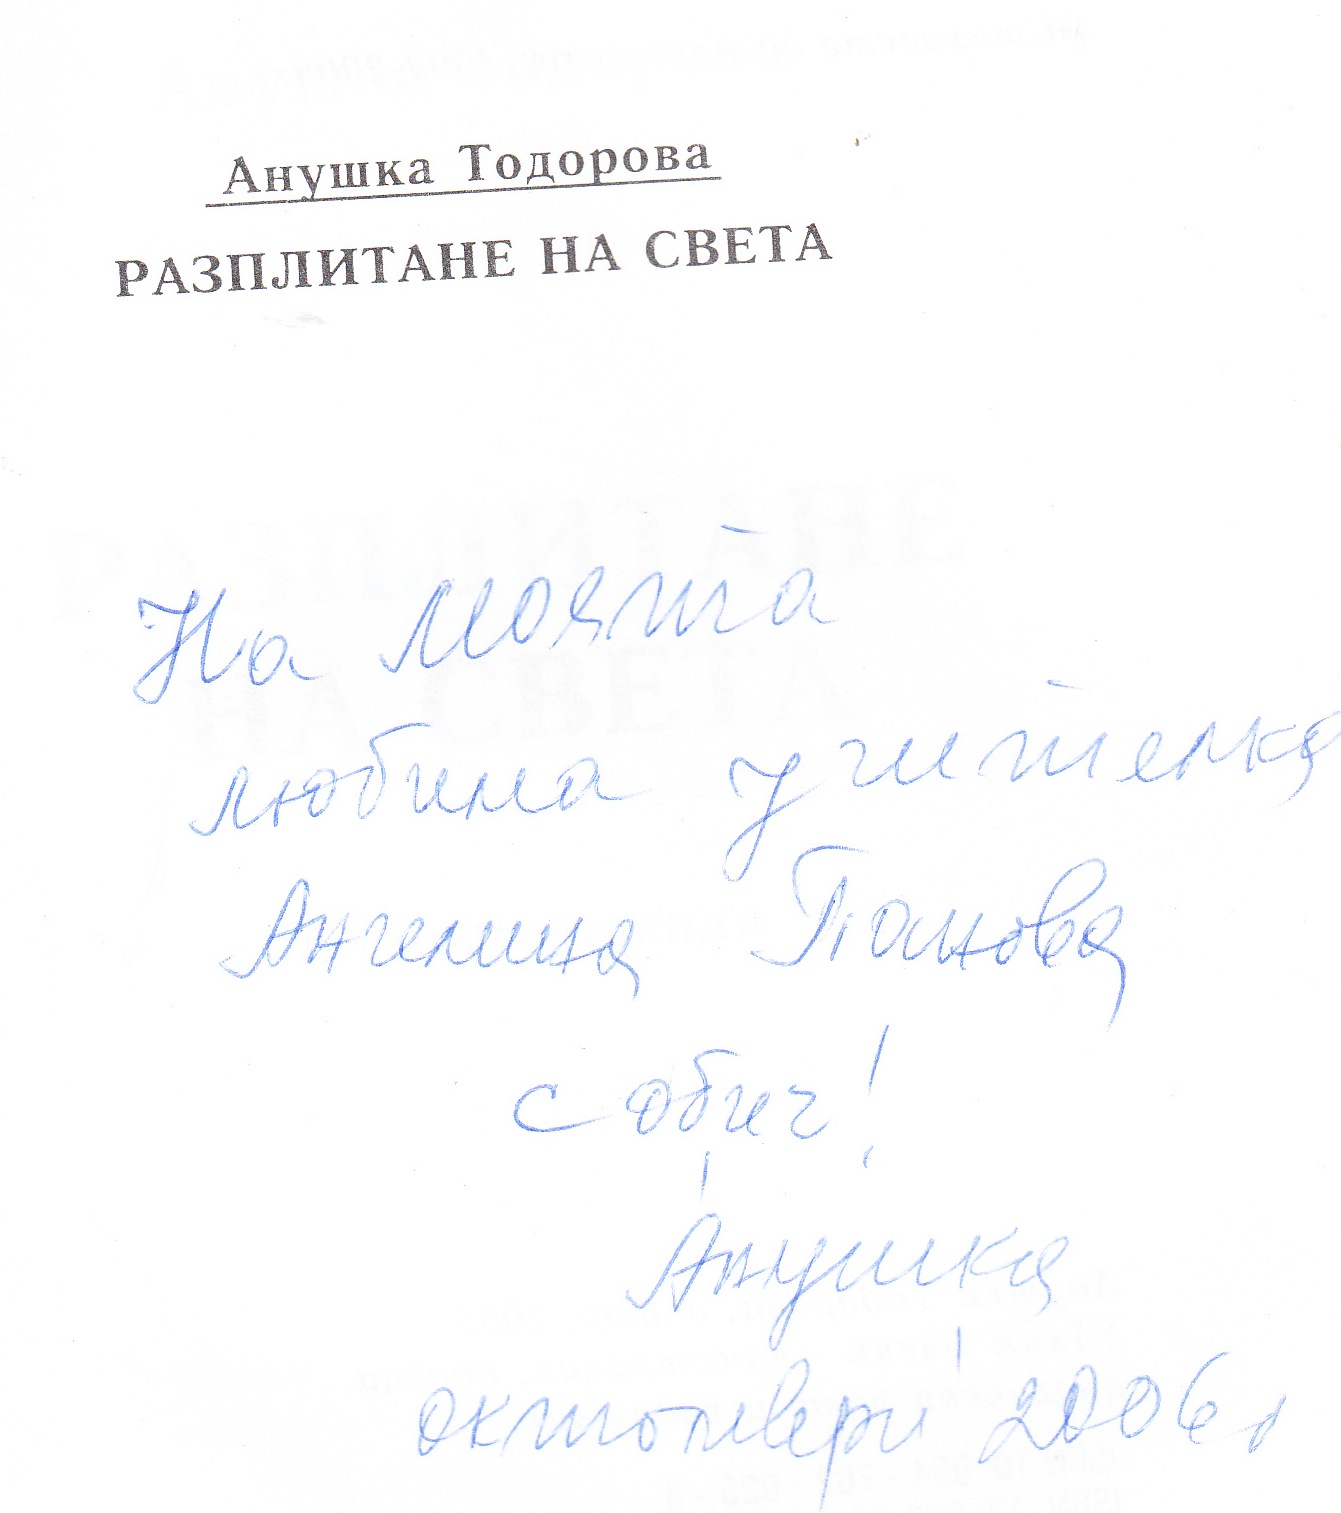 Анушка Тодорова
РАЗПЛИТАНЕ НА СВЕТА
На моята
любима учителка
Ангелина Панова
с обич!
Анушка
октомври 2006г